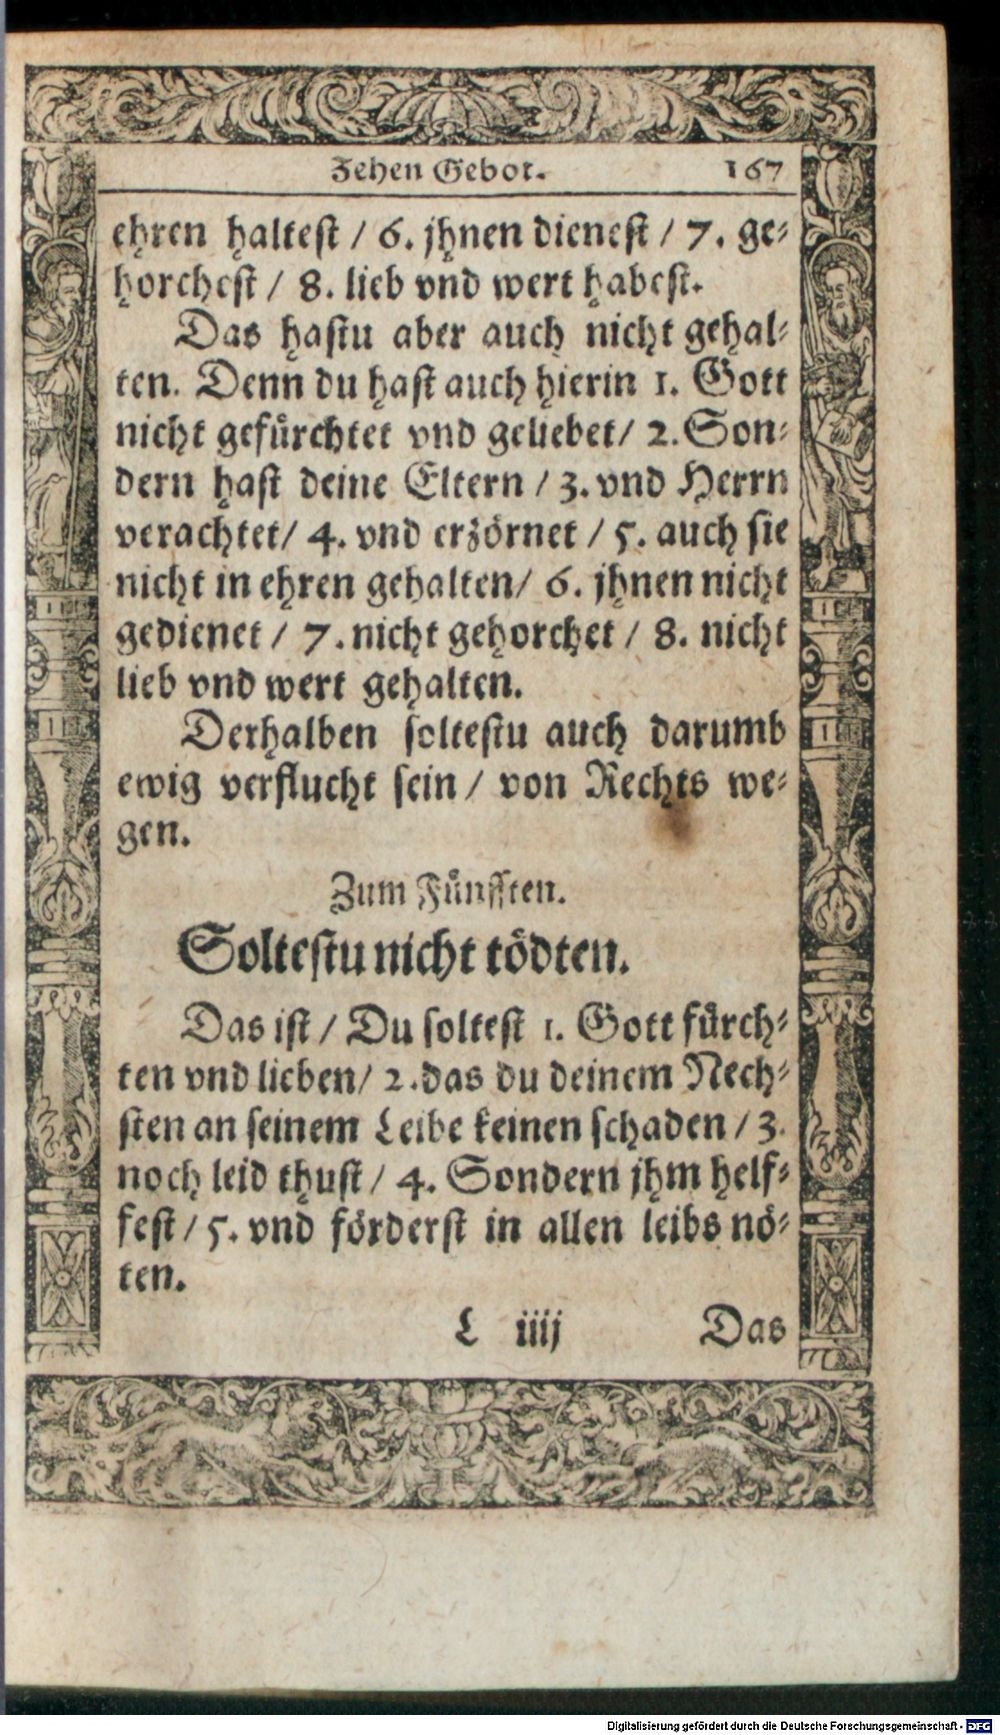 Zehen Gebot. 167
ehren haltest / 6. jhnen dienest / 7. ge-
horchest / 8. lieb vnd wert habest.
Das hastu aber auch nicht gehal-
ten. Denn du hast auch hierin 1. Gott
nicht gefürchtet vnd geliebet / 2. Son-
dern hast deine Eltern / 3. vnd Herrn
verachtet / 4. vnd erzörnet / 5. auch sie
nicht in ehren gehalten / 6. jhnen nicht
gedienet / 7. nicht gehorchet / 8. nicht
lieb vnd wert gehalten.
Derhalben soltestu auch darumb
ewig verflucht sein / von Rechts we-
gen.
Zum Fünfften.
Soltestu nicht tödten.
Das ist / Du soltest 1. Gott fürch-
ten vnd lieben / 2. das du deinem Nech-
sten an seinem Leibe keinen schaden / 3.
noch leid thust / 4. Sondern jhm helf-
fest / 5. vnd förderst in allen leibs nö-
ten.
L iiij Das
Digitalisierung gefördert durch die Deutsche Forschungsgemeinschaft - DFG